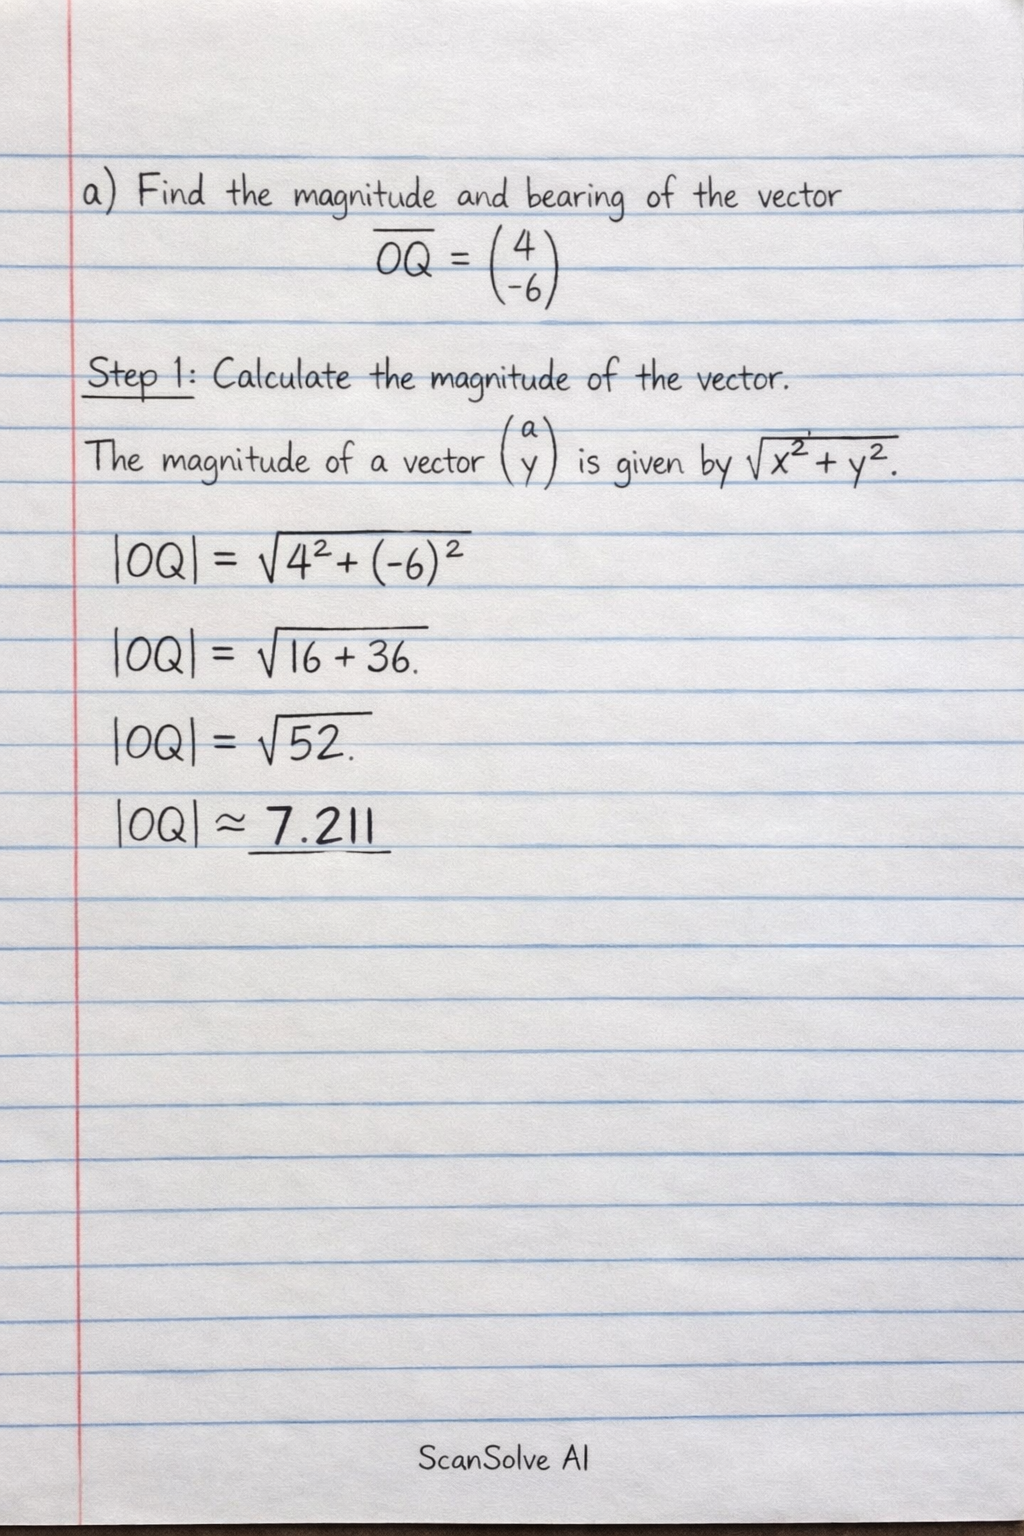 a) Find the magnitude and bearing of the vector
OQ = (4
-6)
Step 1: Calculate the magnitude of the vector.
The magnitude of a vector (a
y) is given by √x² + y².
|OQ| = √4² + (-6)²
|OQ| = √16 + 36.
|OQ| = √52.
|OQ| ≈ 7.211
ScanSolve AI